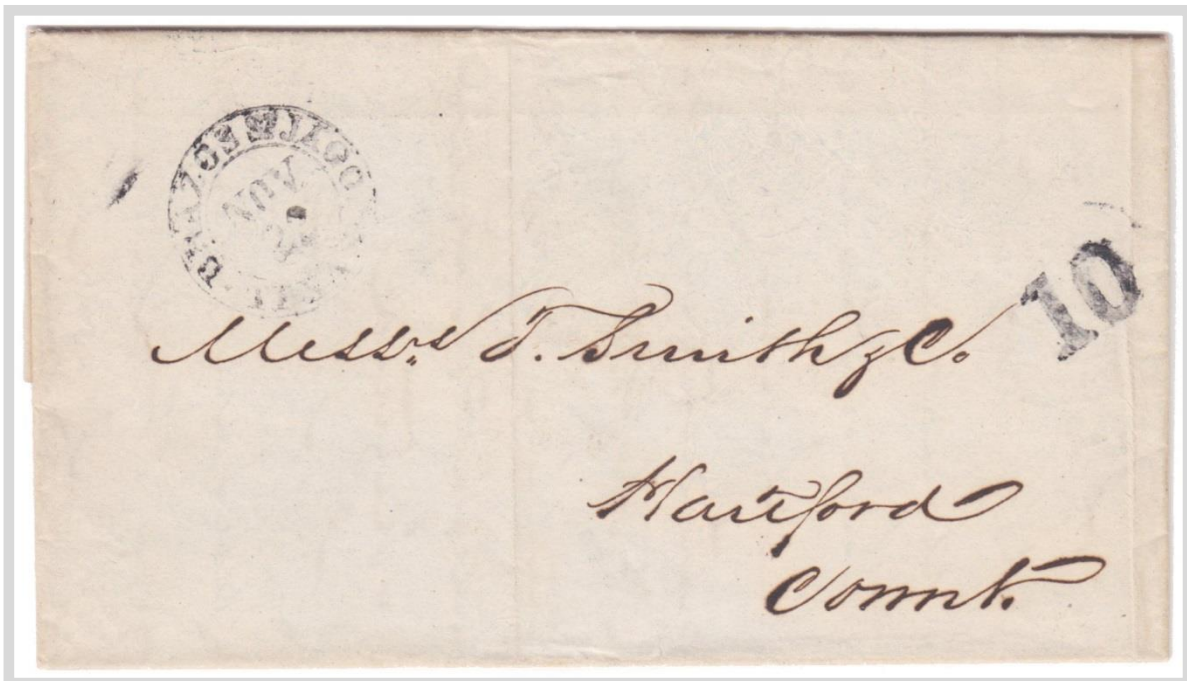 NOV
10
Messrs T. Smith & Co.
Hartford
Connt.